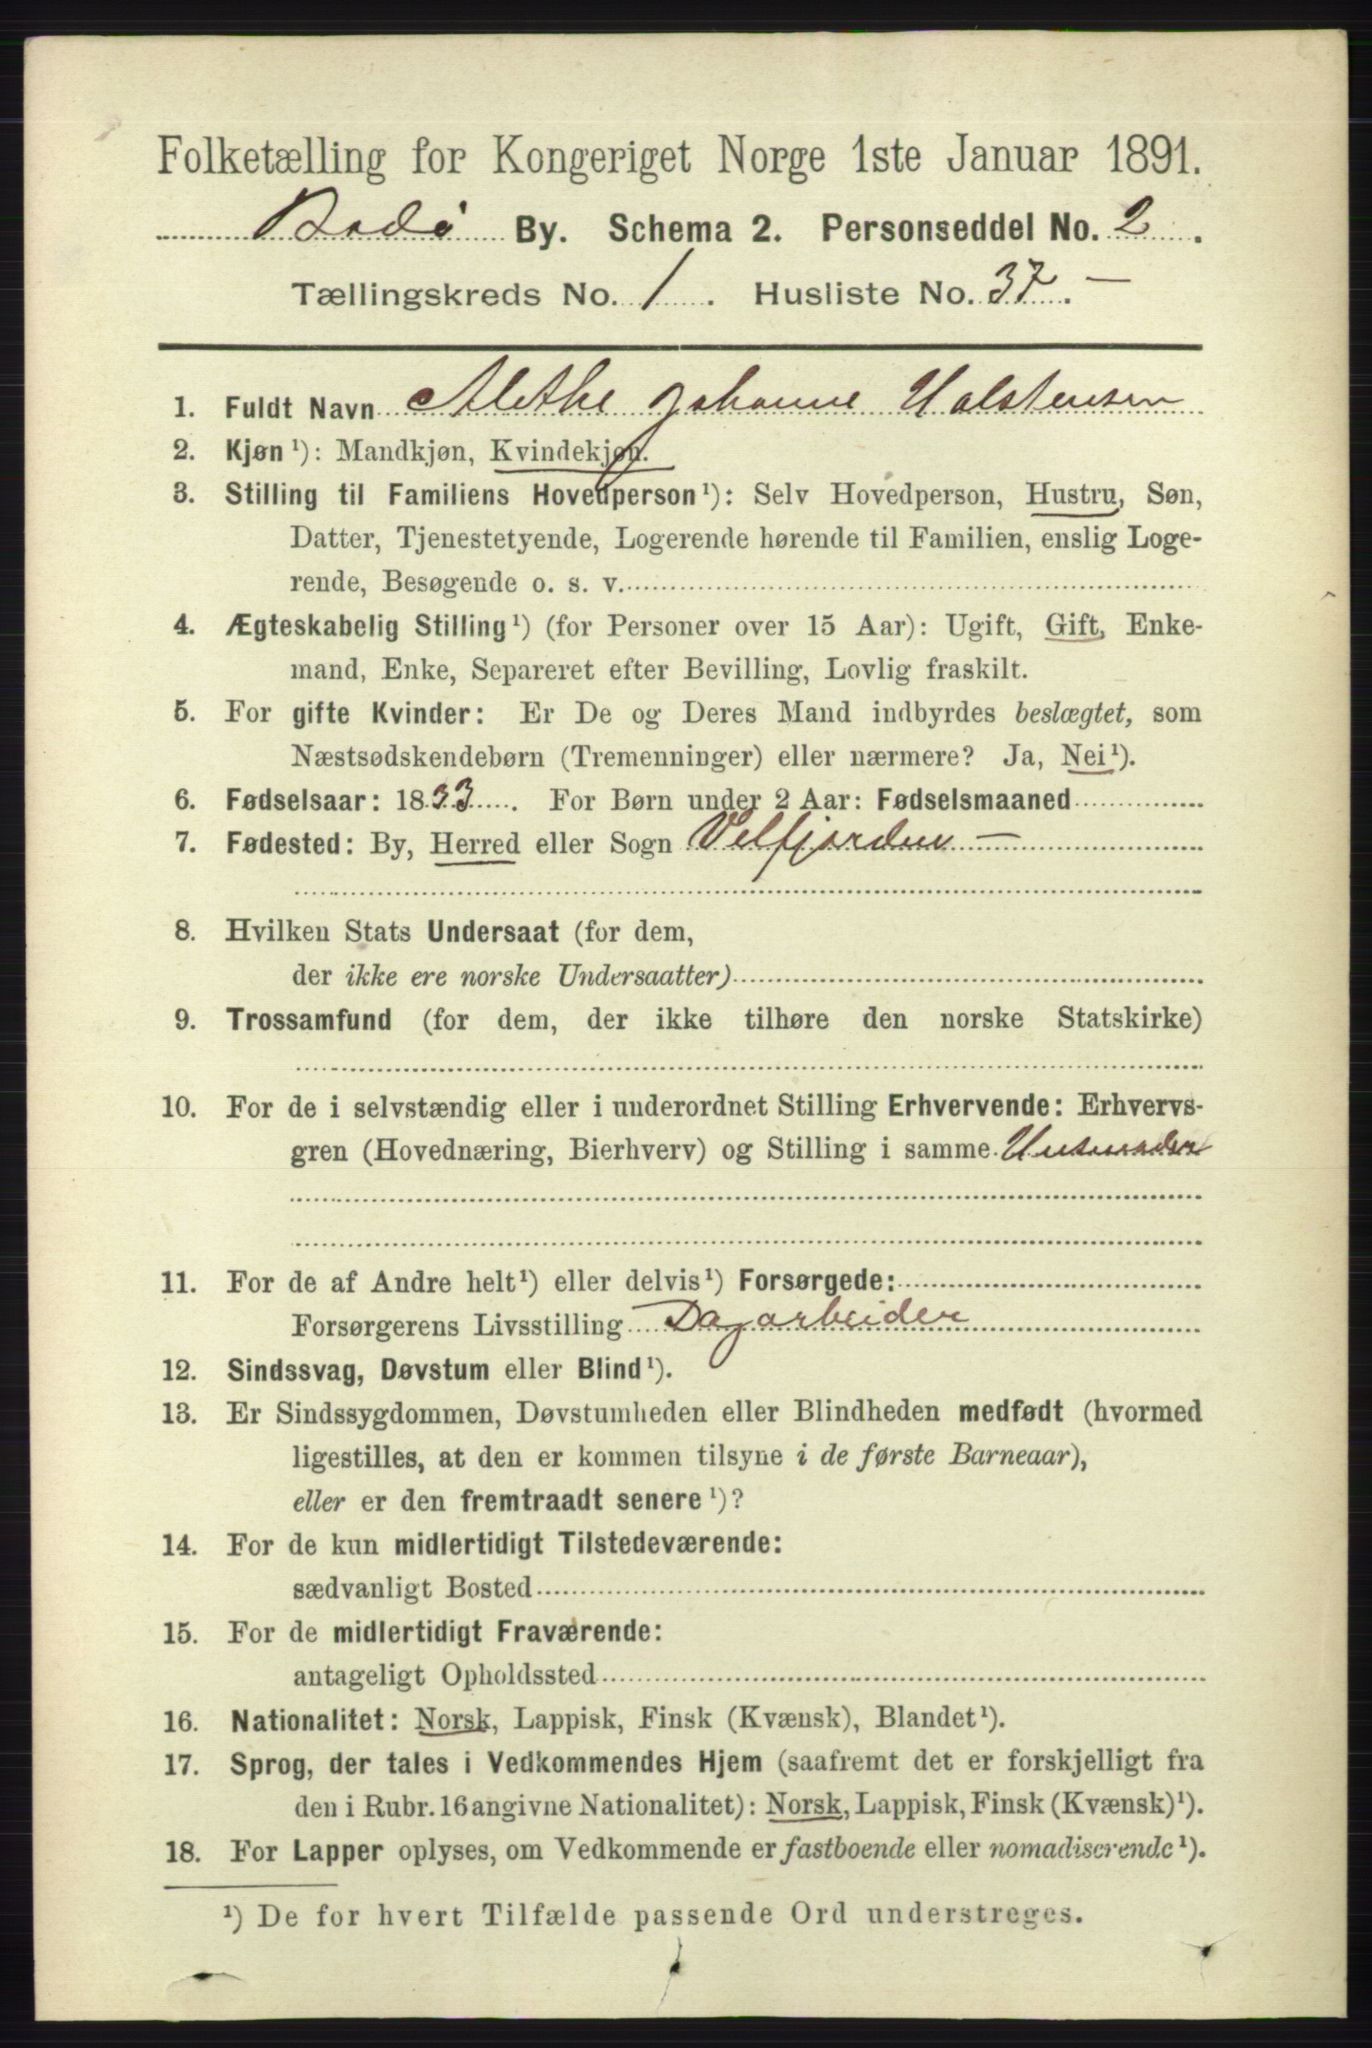 Folketælling for Kongeriget Norge 1ste Januar 1891.
Bodø By. Schema 2. Personseddel No. 2.
Tællingskreds No. 1. Husliste No. 37. —
1. Fuldt Navn Alethe Johanne Halstensen
2. Kjøn ¹): Mandkjøn, Kvindekjøn.
3. Stilling til Familiens Hovedperson ¹): Selv Hovedperson, Hustru, Søn,
Datter, Tjenestetyende, Logerende hørende til Familien, enslig Loge-
rende, Besøgende o. s. v.
4. Ægteskabelig Stilling ¹) (for Personer over 15 Aar): Ugift, Gift, Enke-
mand, Enke, Separeret efter Bevilling, Lovlig fraskilt.
5. For gifte Kvinder: Er De og Deres Mand indbyrdes beslægtet, som
Næstsødskendebørn (Tremenninger) eller nærmere? Ja, Nei ¹).
6. Fødselsaar: 1833. For Børn under 2 Aar: Fødselsmaaned
7. Fødested: By, Herred eller Sogn Velfjorden —
8. Hvilken Stats Undersaat (for dem,
der ikke ere norske Undersaatter)
9. Trossamfund (for dem, der ikke tilhøre den norske Statskirke)
10. For de i selvstændig eller i underordnet Stilling Erhvervende: Erhvervs-
gren (Hovednæring, Bierhverv) og Stilling i samme
11. For de af Andre helt ¹) eller delvis ¹) Forsørgede:
Forsørgerens Livsstilling Dagarbeider
12. Sindssvag, Døvstum eller Blind ¹).
13. Er Sindssygdommen, Døvstumheden eller Blindheden medfødt (hvormed
ligestilles, at den er kommen tilsyne i de første Barneaar),
eller er den fremtraadt senere ¹)?
14. For de kun midlertidigt Tilstedeværende:
sædvanligt Bosted
15. For de midlertidigt Fraværende:
antageligt Opholdssted
16. Nationalitet: Norsk, Lappisk, Finsk (Kvænsk), Blandet ¹).
17. Sprog, der tales i Vedkommendes Hjem (saafremt det er forskjelligt fra
den i Rubr. 16 angivne Nationalitet): Norsk, Lappisk, Finsk (Kvænsk) ¹).
18. For Lapper oplyses, om Vedkommende er fastboende eller nomadiserende ¹).
¹) De for hvert Tilfælde passende Ord understreges.